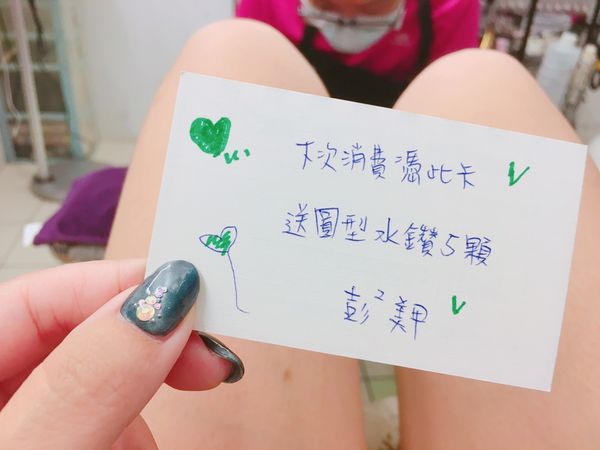 下次消費憑此卡
送圓型水鑽5顆
彭²美甲